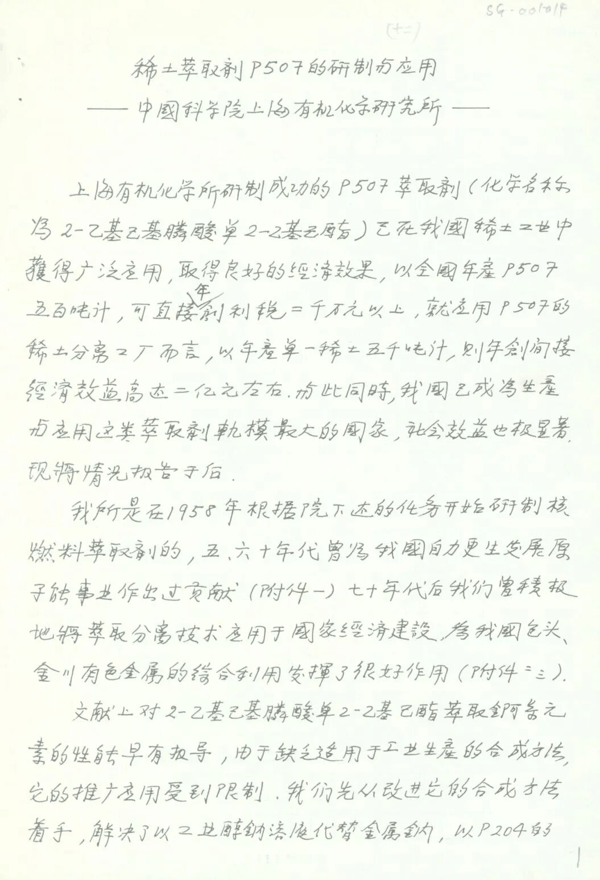 SG-001014
(十二)
稀土萃取剂P507的研制与应用
—— 中國科学院上海有机化学研究所 ——
上海有机化学所研制成功的P507萃取剂(化学名称
为2-乙基己基膦酸单2-乙基己酯)已在我國稀土工业中
獲得广泛应用,取得良好的经済效果,以全國年產P507
五百吨计,可直接年创利税二千万元以上,就应用P507的
稀土分离工厂而言,以年產单一稀土五千吨计,则年创间接
经済效益高达二亿元左右.与此同時,我國已成为生產
与应用这类萃取剂軌模最大的國家,社会效益也极显著.
现将情况报告于后.
我所是在1958年根据院下达的任务开始研制核
燃料萃取剂的,五、六十年代曾为我國自力更生发展原
子能事业作出过贡献(附件一)七十年代后我们曾積极
地将萃取分离技术应用于國家经済建設,为我國包头、
金川有色金属的综合利用发揮了很好作用(附件二三).
文献上对2-乙基己基膦酸单2-乙基己酯萃取錒系元
素的性能早有报导,由于缺乏适用于工业生產的合成方法,
它的推广应用受到限制.我们先从改进它的合成方法
着手,解决了以工业醇鈉溶液代替金属鈉,以P204的
1